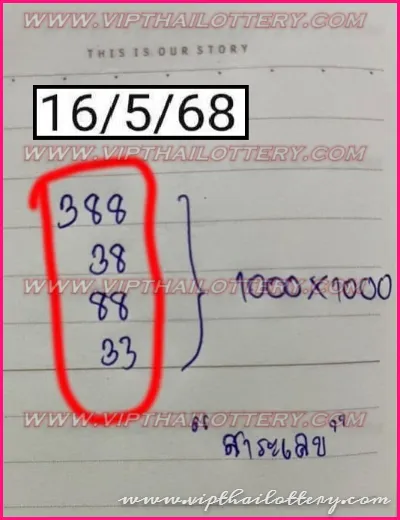 WWW.VIPTHAILOTTERY.COM
THIS IS OUR STORY
WWW.VIPTHAILOTTERY.COM
16/5/68
WWW.VIPTHAILOTTERY.COM
388
38
WWW.VIPTHAILOTTERY.COM
1000X1000
88
WWW.VIPTHAILOTTERY.COM
33
WWW.VIPTHAILOTTERY.COM
"สาระเลข"
www.vipthailottery.com